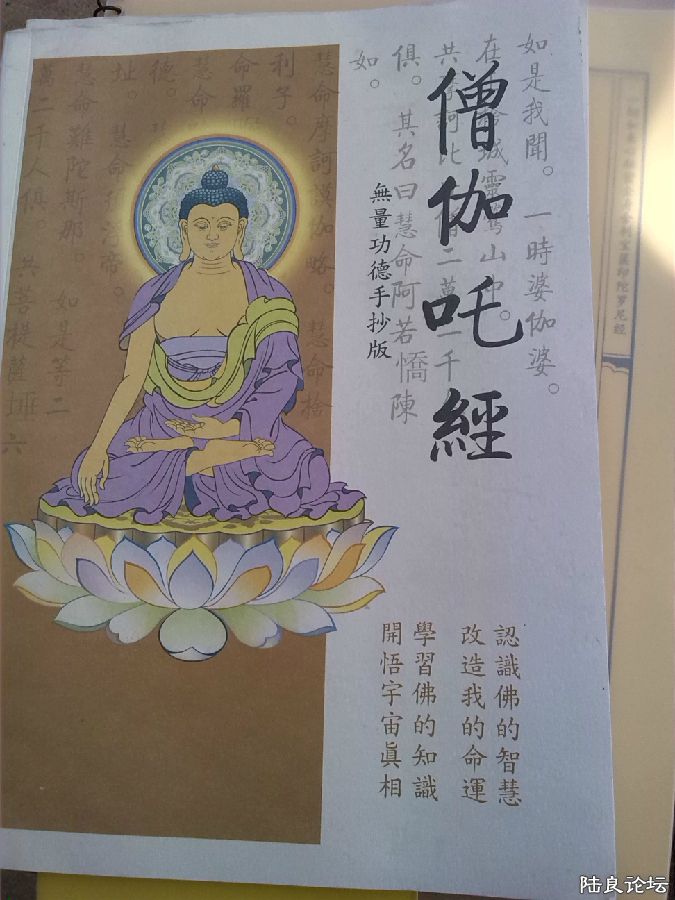 僧伽吒經
無量功德手抄版
如是我聞。一時婆伽婆。
俱。其名曰慧命阿若憍陳
如。
慧命摩訶謨伽略。慧命舍
利子。
命羅
慧命
德。
址。
慧命難陀斯那。如是等二
萬二千人俱。共菩提薩埵六
認識佛的智慧
改造我的命運
學習佛的知識
開悟宇宙眞相
陆良论坛